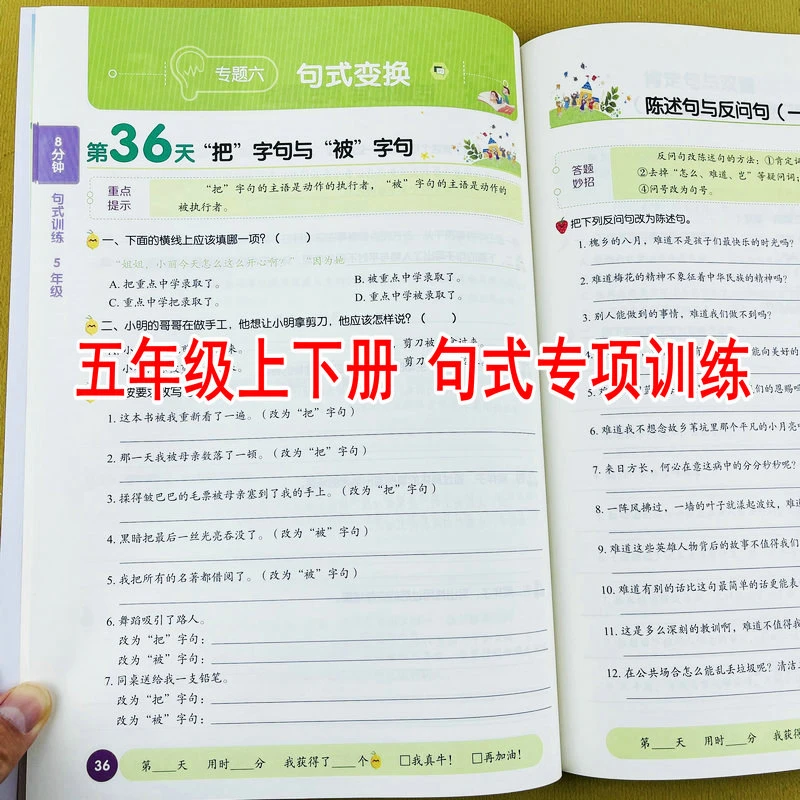 专题六 句式变换
8分钟 句式训练 5年级
第36天 “把”字句与“被”字句
重点
提示
“把”字句的主语是动作的执行者，“被”字句的主语是动作的
被执行者。
一、下面的横线上应该填哪一项？（ ）
“姐姐，小丽今天怎么这么开心啊？”“因为她
A. 把重点中学录取了。 B. 被重点中学录取了。
C. 重点中学把录取了。 D. 重点中学被录取了。
二、小明的哥哥在做手工，他想让小明拿剪刀，他应该怎样说？（ ）
五年级上下册 句式专项训练
按要求改写
1. 这本书被我重新看了一遍。（改为“把”字句）
2. 那一天我被母亲数落了一顿。（改为“把”字句）
3. 揉得皱巴巴的毛票被母亲塞到了我的手上。（改为“把”字句）
4. 黑暗把最后一丝光亮吞没了。（改为“被”字句）
5. 我把所有的名著都借阅了。（改为“被”字句）
6. 舞蹈吸引了路人。
改为“把”字句：
改为“被”字句：
7. 同桌送给我一支铅笔。
改为“把”字句：
改为“被”字句：
36
第____天 用时____分 我获得了____个 □我真牛！ □再加油！
陈述句与反问句（一
答题
妙招
反问句改陈述句的方法：①肯定词
②去掉“怎么、难道、岂”等疑问词；
④问号改为句号。
把下列反问句改为陈述句。
1. 槐乡的八月，难道不是孩子们最快乐的时光吗？
2. 难道梅花的精神不象征着中华民族的精神吗？
3. 别人能做到的事情，难道我们做不到吗？
能向美好的
们的恩赐吗
6. 难道我不想念故乡苇坑里那个平凡的小月亮吗
7. 来日方长，何必在意这病中的分分秒秒呢？
8. 一阵风拂过，一墙的叶子就漾起波纹，难道
9. 难道这些英雄人物背后的故事不值得我们
10. 难道有别的话比这句最简单的话更能表
11. 这是多么深刻的教训啊，难道不值得我
12. 在公共场合怎么能乱丢垃圾呢？清洁
第____天 用时____分 我获得